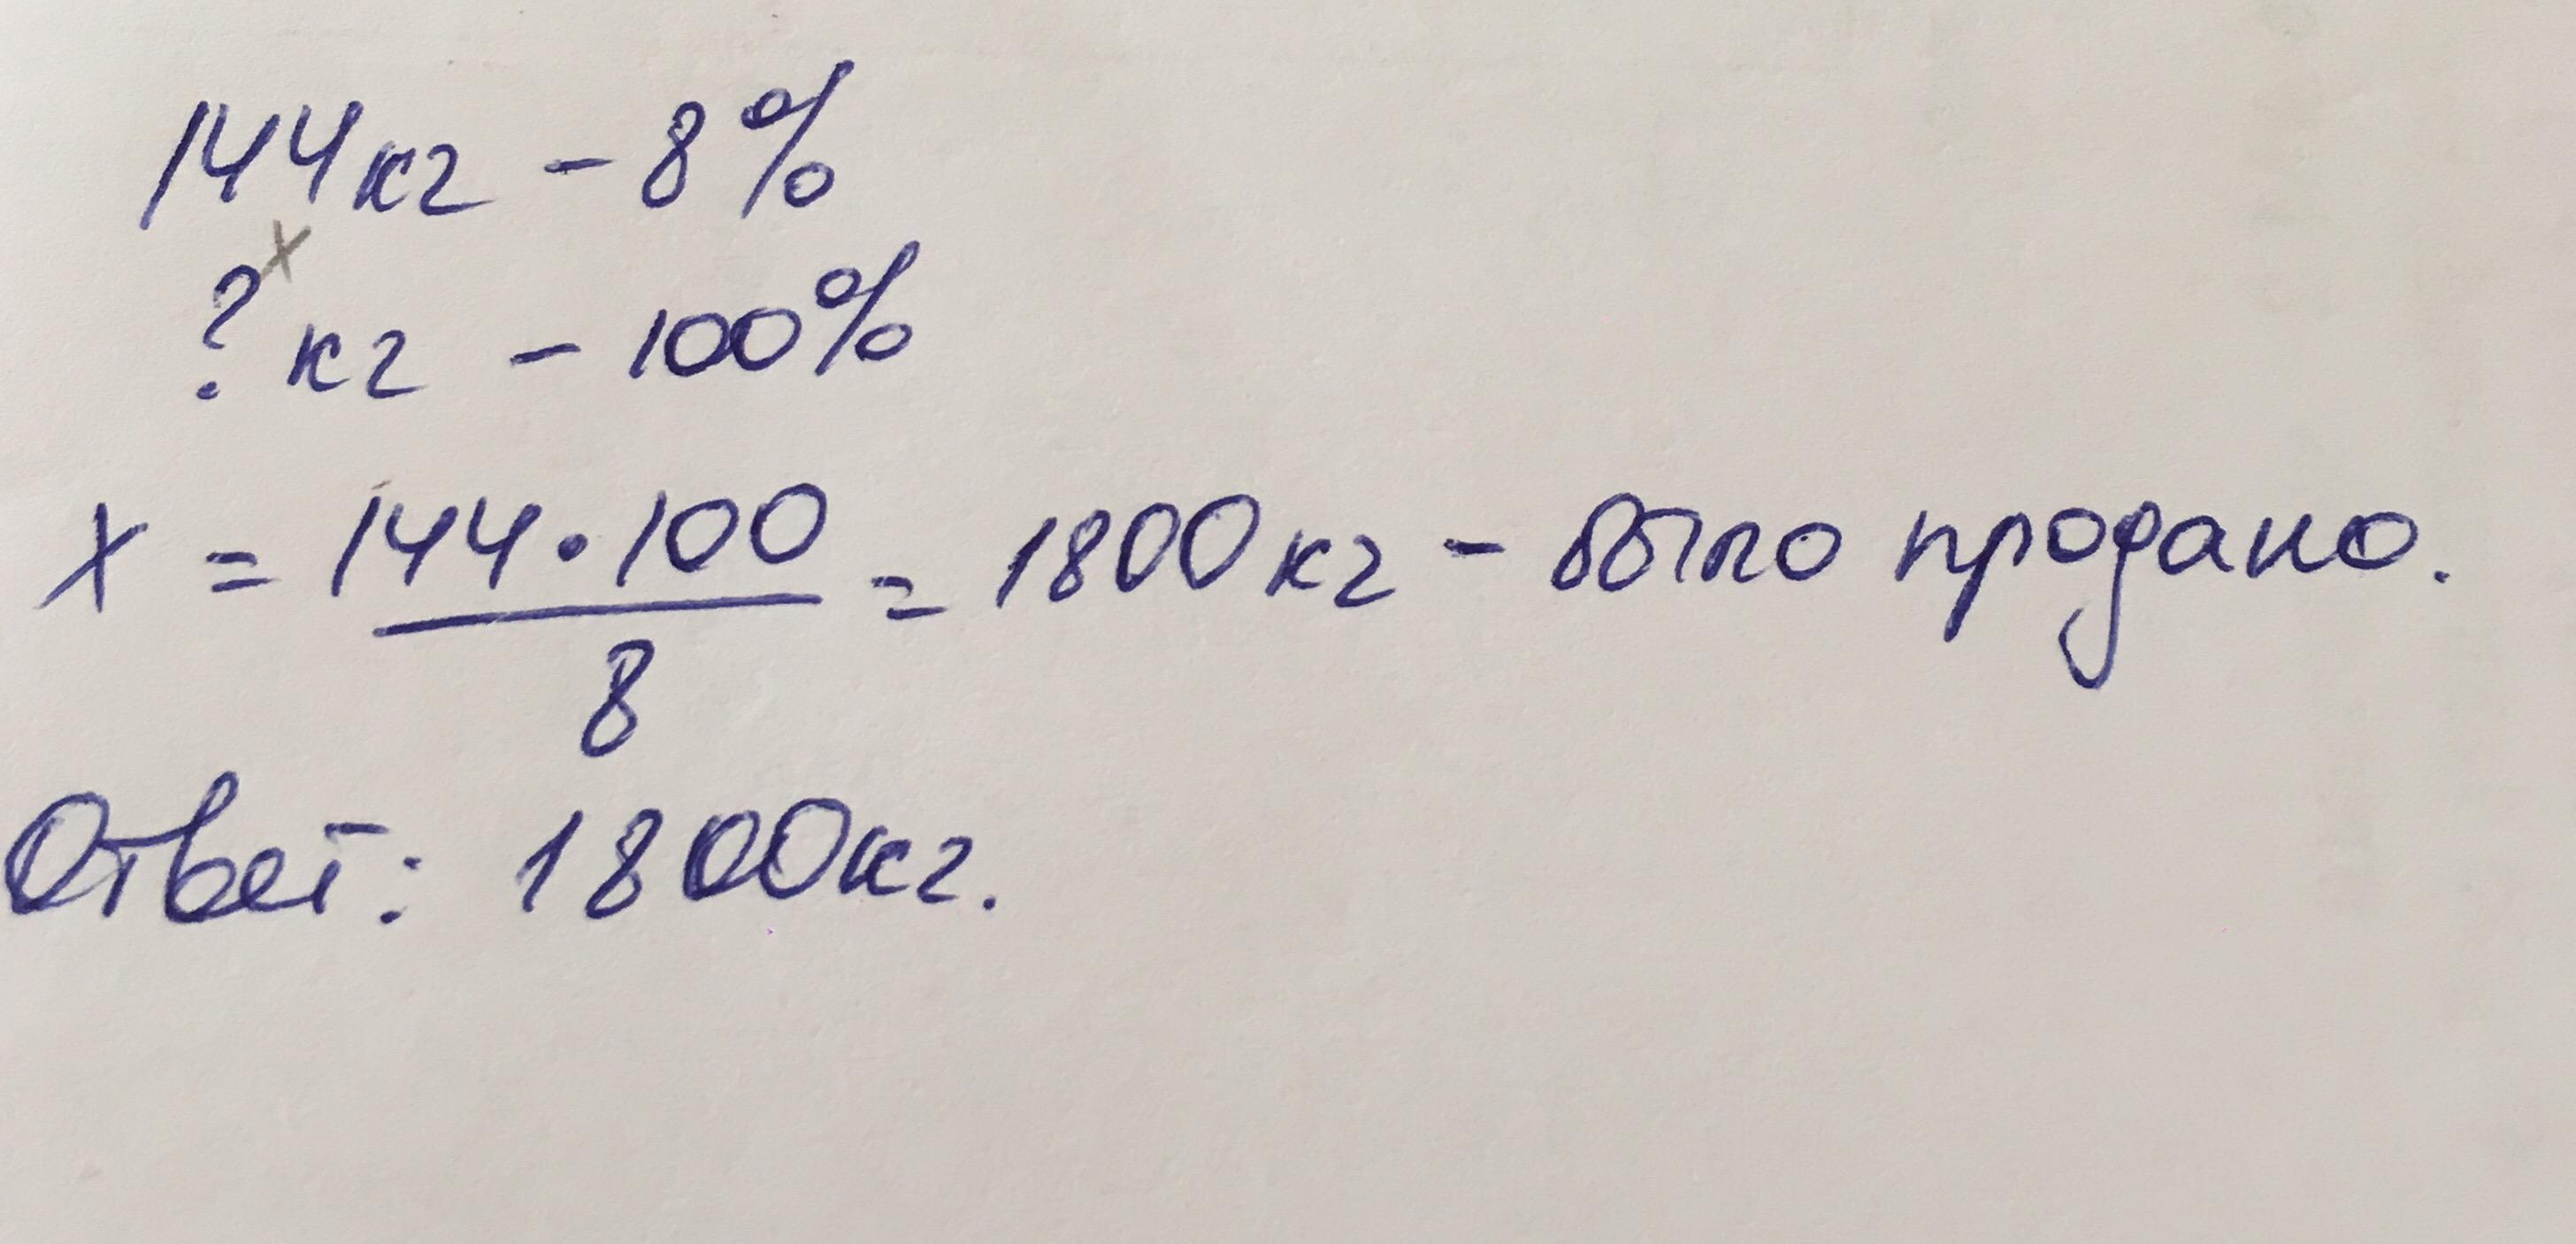 144кг - 8%
x
? кг - 100%
x = 144 · 100 / 8 = 1800 кг - было продано.
Ответ: 1800кг.